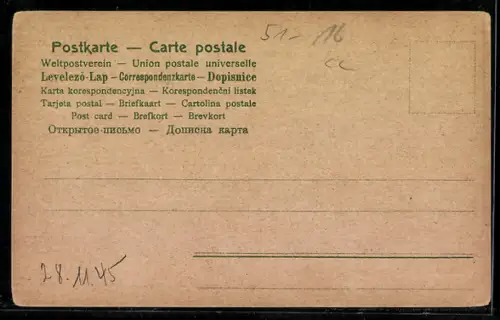 Postkarte — Carte postale
51-16
Weltpostverein — Union postale universelle
cc
Levelező-Lap – Correspondenzkarte – Dopisnice
Karta korespondencyjna — Korespondenční listek
Tarjeta postal — Briefkaart — Cartolina postale
Post card — Brefkort — Brevkort
Открытое-письмо — Дописна карта
28.11.45